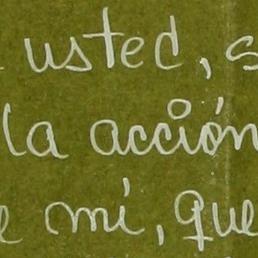 usted, s
la acción
e mí, que